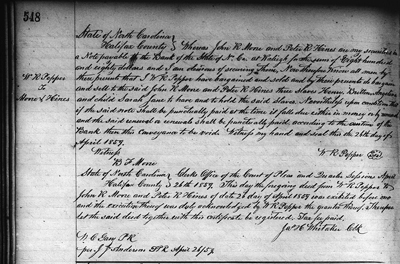 548
State of North Carolina
Halifax County } Whereas John K. Moore and Peter K. Hines are my securities to
a Note payable to the Bank of the State of N. Ca. at Raleigh for the sum of Eight hundred
and eighty dollars and I am desirous of securing them, Now therefore know all men by
these presents that I W. K. Pepper have bargained and sold and by these presents do bargain
and sell to the said John K. Moore and Peter K. Hines three Slaves Henry,
and child Sarah Jane to have and to hold the said slaves Nevertheless upon condition that
if the said note shall be punctually paid at the time it falls due either in money or by renewal
and the said renewal or renewals shall be punctually paid according to the custom of
Bank then this conveyance to be void. Witness my hand and seal this the 26th day of
April 1859.
W. K. Pepper
To
Moore & Hines
Witness
W. K. Pepper Seal
B. F. Moore
State of North Carolina } Clerks Office of the Court of Pleas and Quarter Sessions April
Halifax County } 26th 1859. This day the foregoing deed from W. K. Pepper to
John K. Moore and Peter K. Hines of date 26 day of April 1859 was exhibited before me
and the execution thereof was duly acknowledged by W. K. Pepper the grantor thereof. Therefore
let the said deed together with this certificate be registered. Tax fee paid.
Jas. H. Whitaker Clk
P.R.
per J. J. Anderson April 26/59.